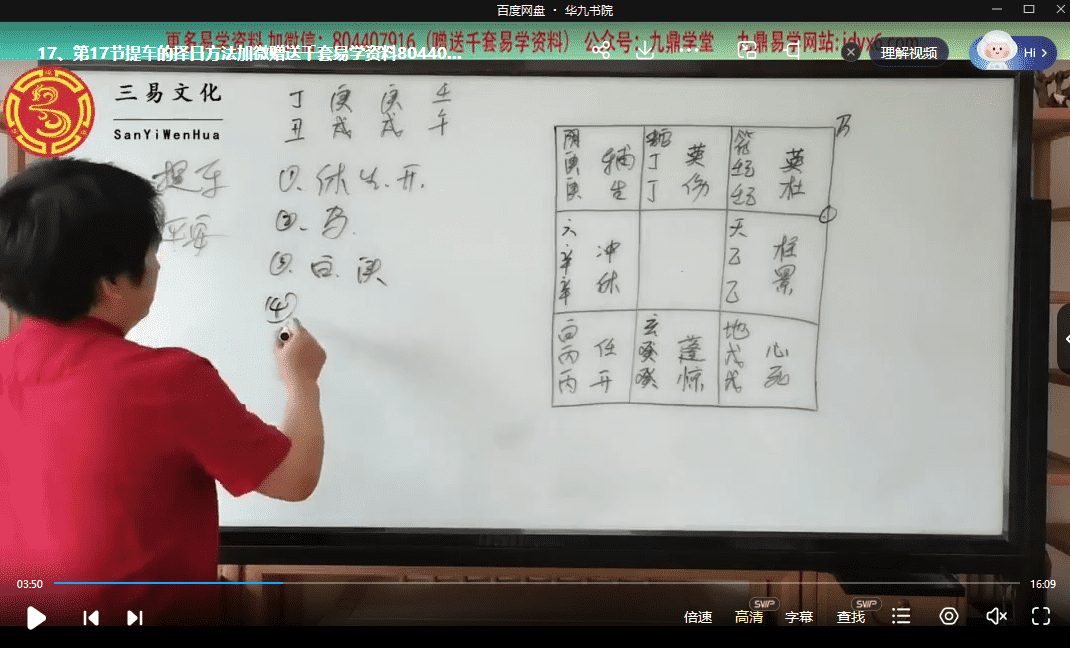 百度网盘 · 华九书院
更多易学资料 加微信：804407916（赠送千套易学资料）公众号：九鼎学堂 九鼎易学网站:jdyx6.com
17、第17节提车的择日方法加微赠送千套易学资料80440...
理解视频
Hi
三易文化
SanYiWenHua
丁 庚 庚 壬
丑 戌 戌 午
提车
平安
①. 休 生 开.
②. 马.
③. 白. 庚
④
马
阴 庚 庚 辅 生
丁 丁 英 伤
杜
六 辛 辛 冲 休
天 乙 乙 柱 景
白 丙 丙 任 开
玄 癸 癸 蓬 惊
地 戊 戊 心 死
03:50
16:09
倍速
高清
SVIP
字幕
查找
SVIP